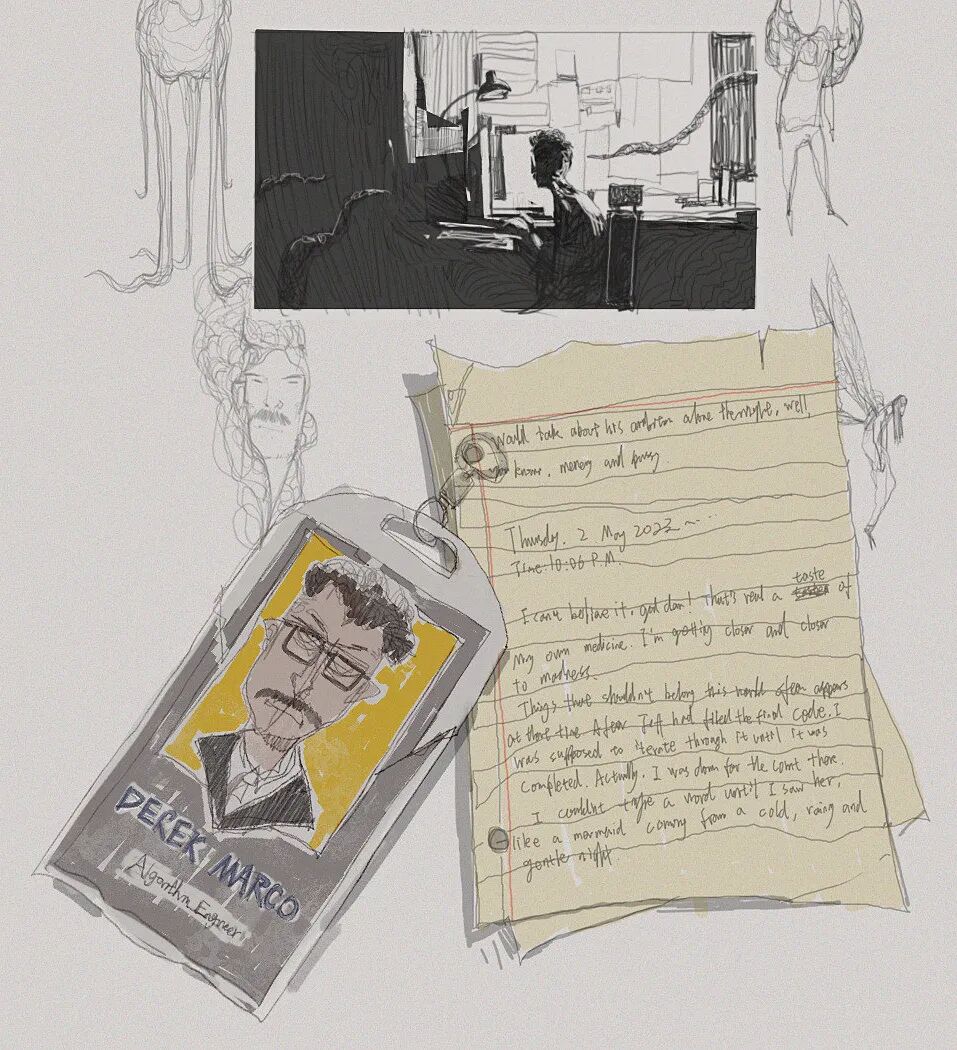 would talk about his ambition alone the night, well,
you know, money and pussy.
Thursday, 2 May 2023
Time: 10:06 P.M.
I can't believe it, god dam! That's real a taste of
my own medicine. I'm getting closer and closer
to madness.
Things that shouldn't belong this world often appears
at that time After Jeff had filed the final code. I
was supposed to iterate through it until it was
completed. Actually, I was down for the count there.
I couldn't type a word until I saw her,
like a mermaid coming from a cold, rainy and
gentle night.
DEREK MARCO
Algorithm Engineer